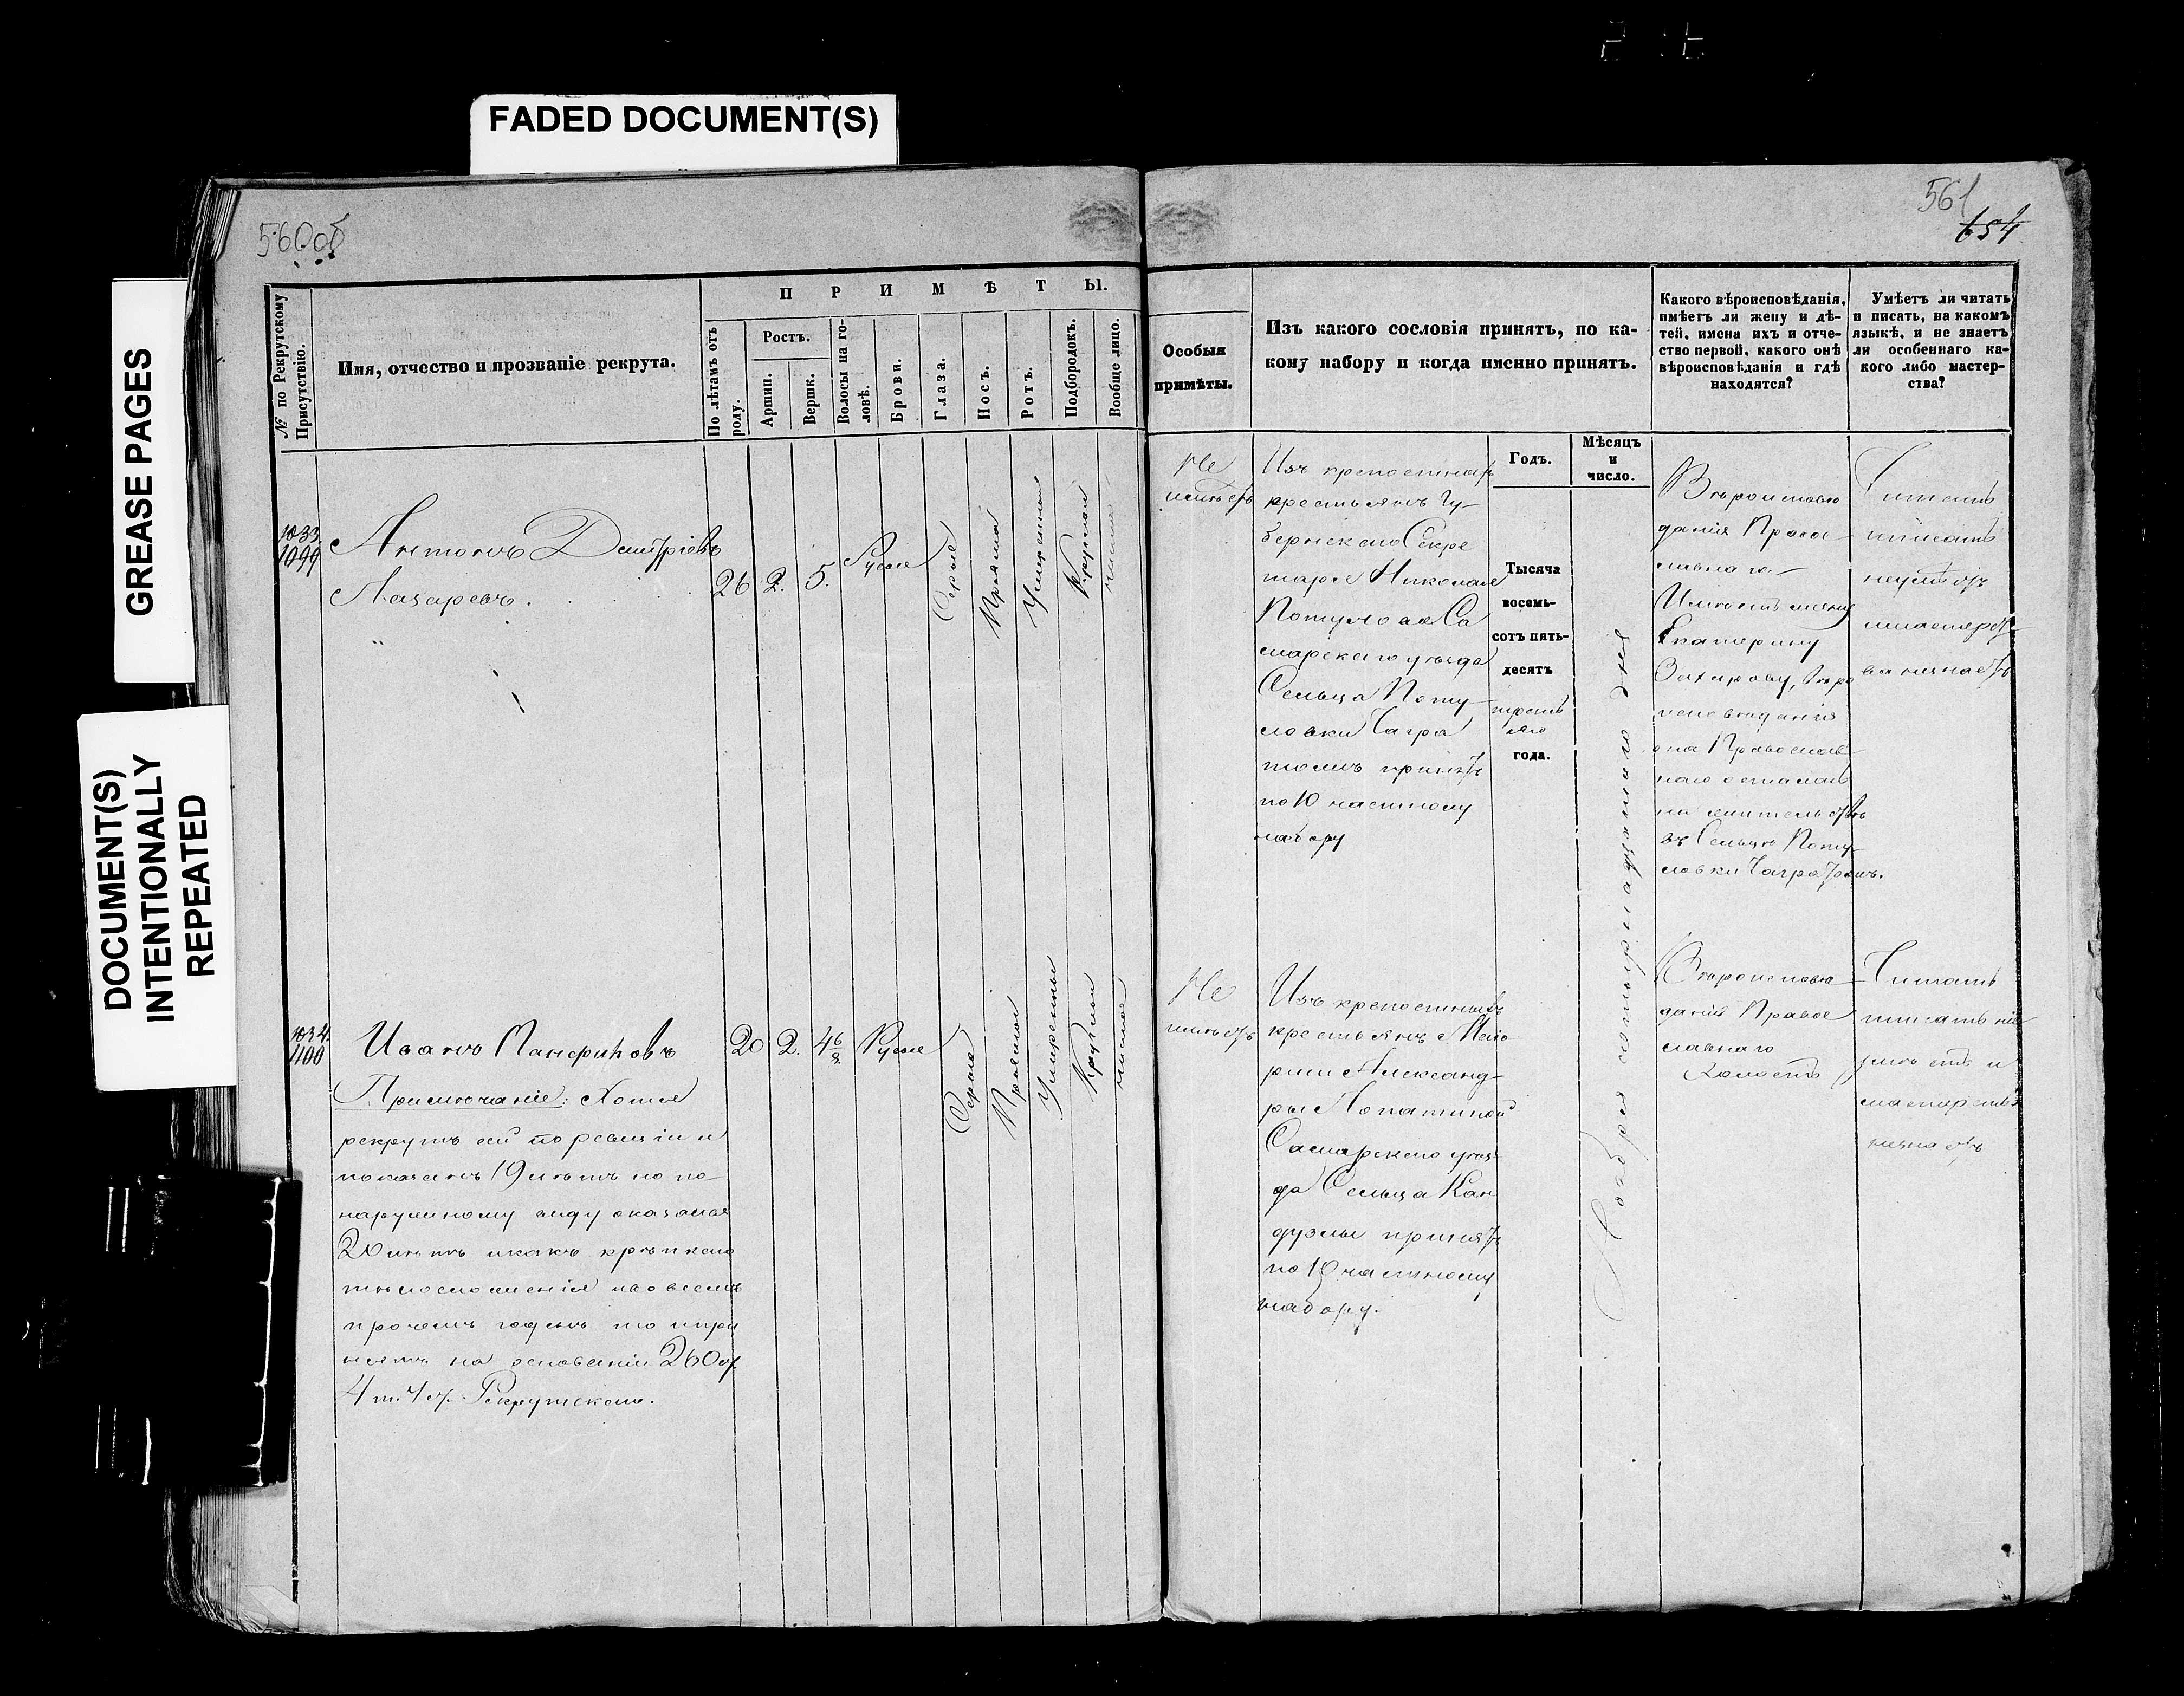 FADED DOCUMENT(S)
GREASE PAGES
DOCUMENT(S)
INTENTIONALLY
REPEATED
560об
561
654
№ по Рекрутскому
Присутствію.
Имя, отчество и прозваніе рекрута.
ПРИМѢТЫ.
По лѣтамъ отъ
роду.
Ростъ.
Аршин.
Вершк.
Волосы на го-
ловѣ.
Брови.
Глаза.
Носъ.
Ротъ.
Подбородокъ.
Вообще лицо.
Особыя
примѣты.
Изъ какого сословія принятъ, по ка-
кому набору и когда именно принятъ.
Какого вѣроисповѣданія,
имѣетъ ли жену и дѣ-
тей, имена ихъ и отче-
ство первой, какого онѣ
вѣроисповѣданія и гдѣ
находятся?
Умѣетъ ли читать
и писать, на какомъ
языкѣ, и не знаетъ
ли особеннаго ка-
кого либо мастер-
ства?
Годъ.
Мѣсяцъ
и
число.
1033
1099
Антонъ Дмитріевъ
Лазаревъ.
26
2.
5.
Русые
Серые
Прямой
Умеренный
Круглый
чистое
Не
имѣетъ
Изъ крепостныхъ
крестьянъ Гу-
бернскаго Секре
таря Николая
Потулова Са
марскаго уѣзда
Сельца Поту
ловки Чагра
тожъ принятъ
по 10 частному
набору
Тысяча
восемь-
сотъ пять-
десятъ
третьяго
года.
Ноября четырнадцатаго дня
Вѣроисповѣ
данія Правос
лавнаго.
Имѣетъ жену
Екатерину
Захарову, Вѣро
исповѣданія
она Православ
наго осталась
на жительствѣ
въ Сельцѣ Поту-
ловки Чагра тожъ.
Читать
писать
неумѣетъ
мастерст
ва незнаетъ
1034
400
Иванъ Панфиловъ
20
2.
4 6/8
Русые
Серые
Прямой
Умеренный
Круглый
чистое
Примѣчаніе: Хотя
рекрутъ сей по ревизіи и
показанъ 19 лѣтъ но по
наружному виду оказался
20 лѣтъ и какъ крѣпкаго
тѣлосложенія и во всемъ
прочемъ годенъ то и при
нятъ на основаніи 260 ст.
4 т. 1 ст. Рекрутскаго.
Не
имѣетъ
Изъ крепостныхъ
крестьянъ Маіо
рши Александ-
ры Лопатиной
Самарскаго уѣз
да Сельца Кан
дузлы принятъ
по 10 частному
набору.
Вѣроисповѣ
данія Правос
лавнаго
Холостъ
Читать
писать не
умѣетъ и
мастерства
незнаетъ